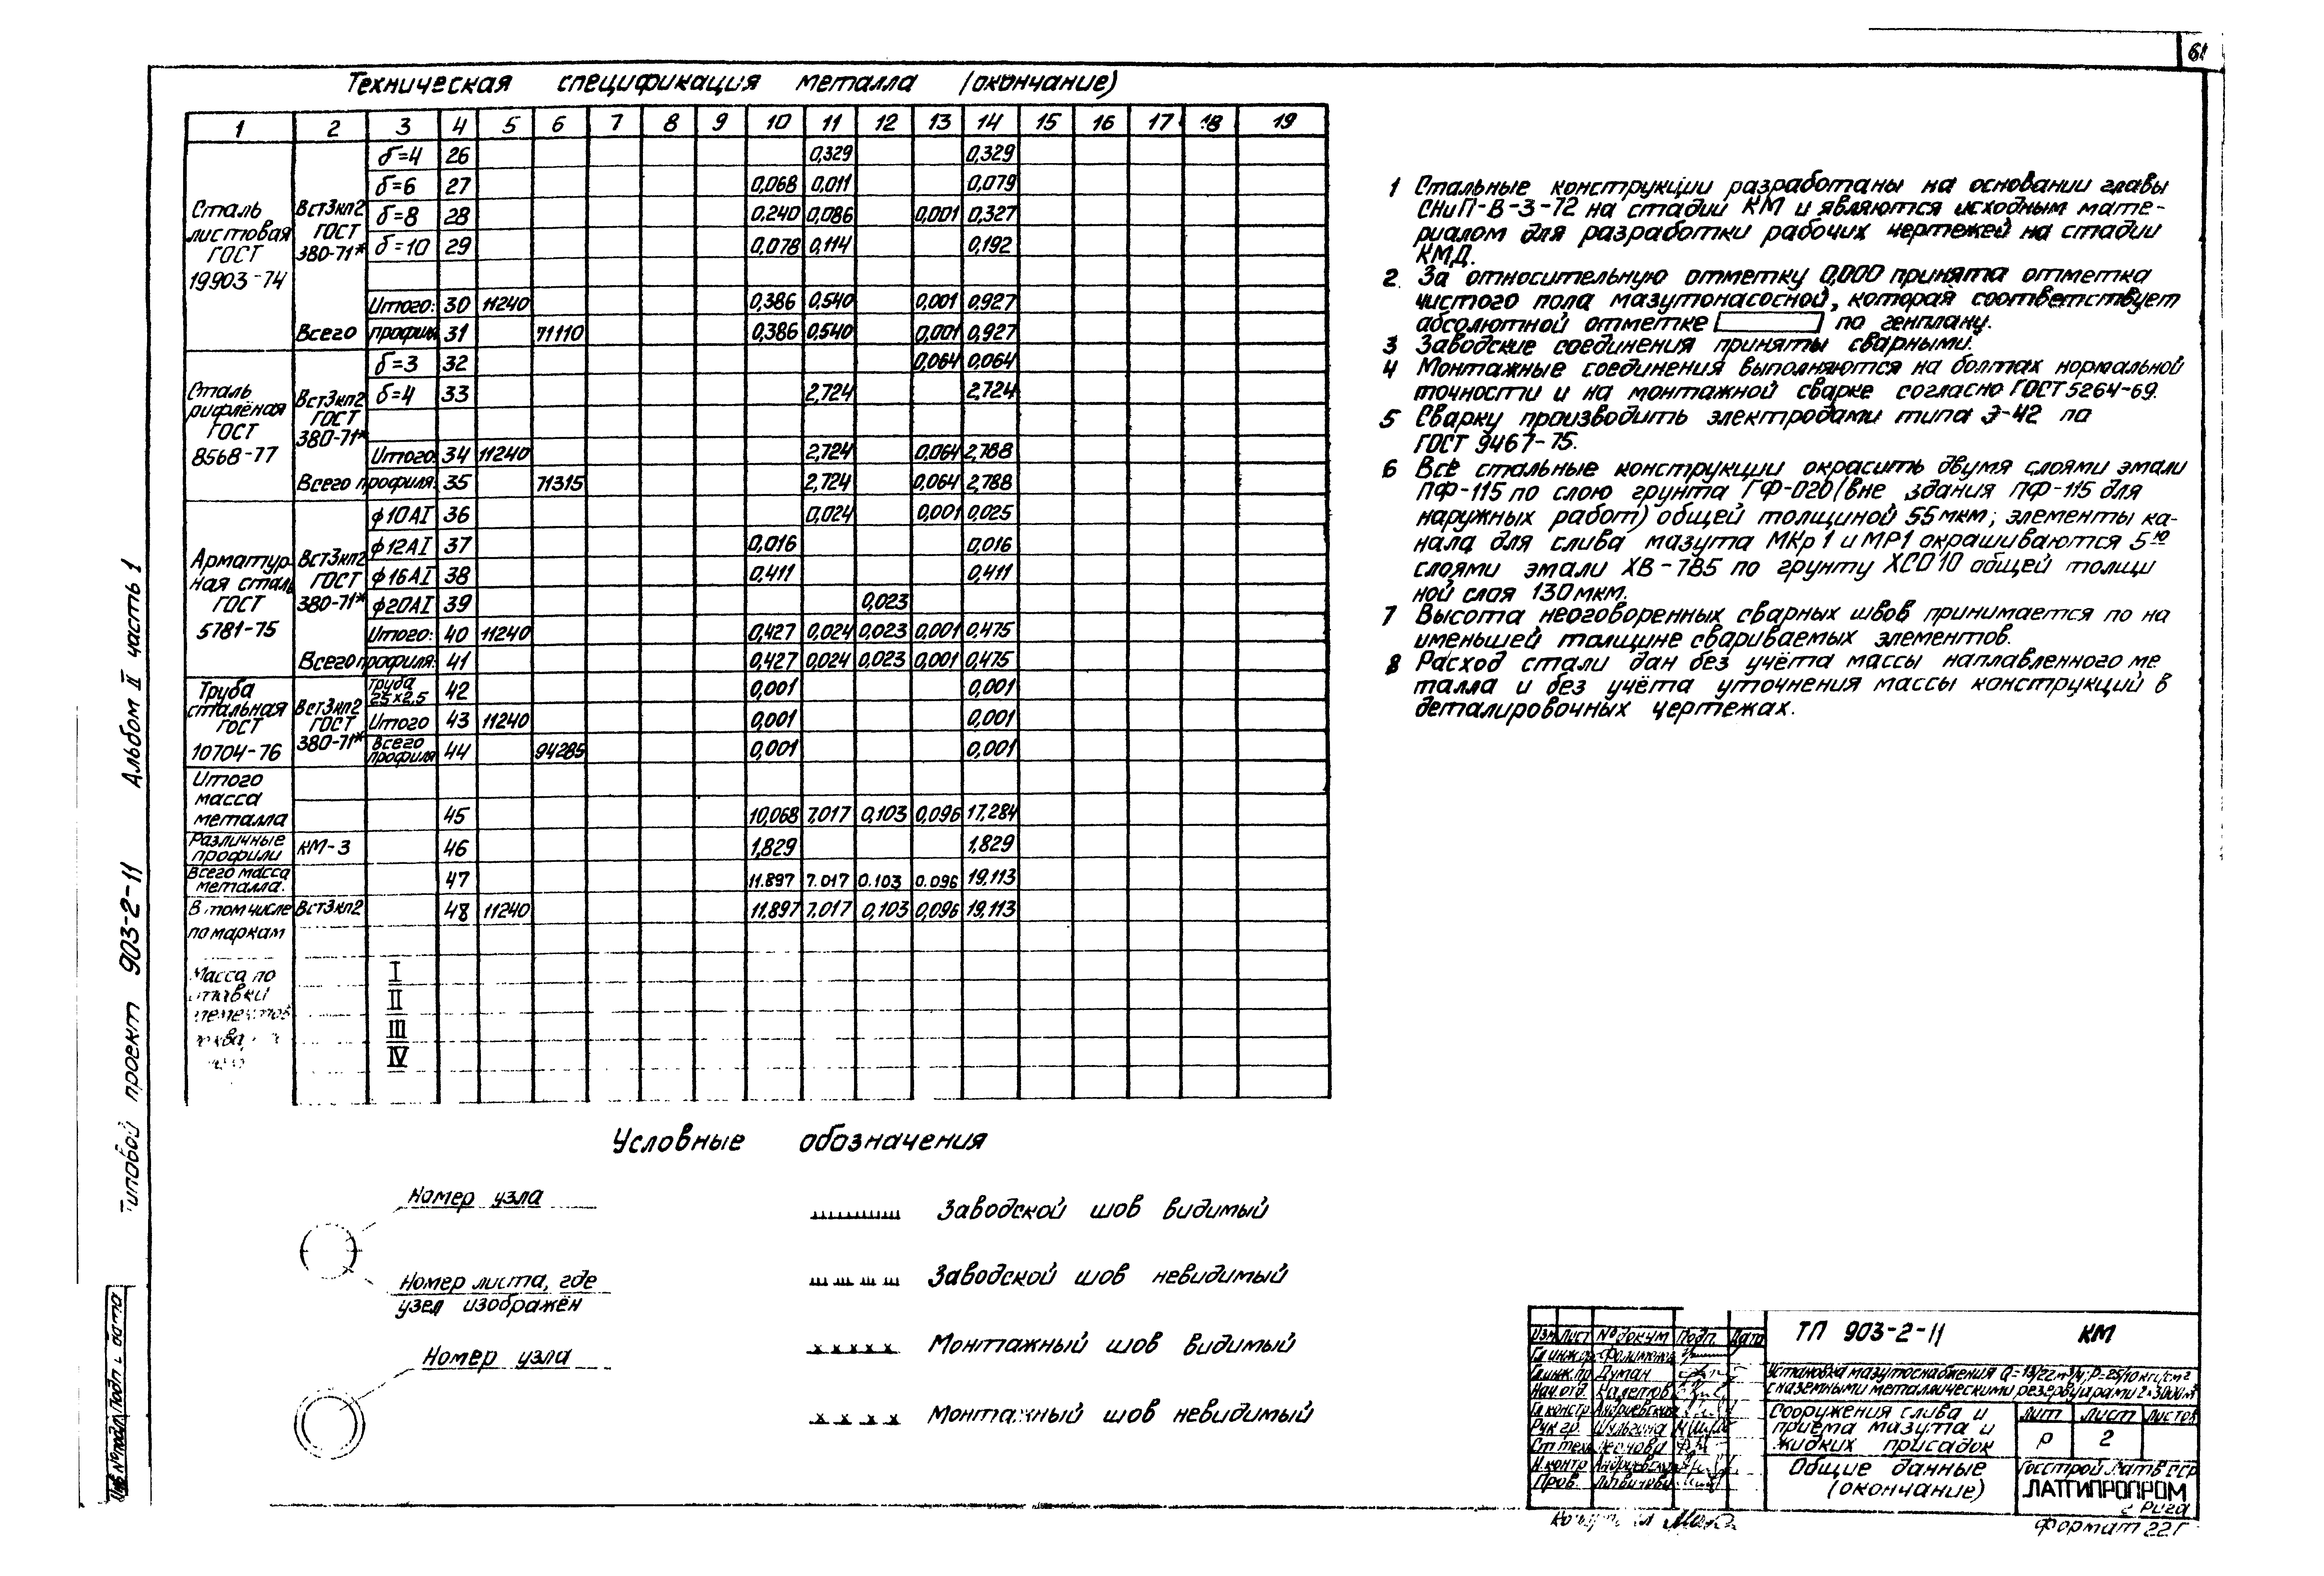 61
Техническая спецификация металла (окончание)
1 2 3 4 5 6 7 8 9 10 11 12 13 14 15 16 17 18 19
Сталь листовая ГОСТ 19903-74 ВСт3кп2 ГОСТ 380-71*
δ=4 26 0,329 0,329
δ=6 27 0,068 0,011 0,079
δ=8 28 0,240 0,086 0,001 0,327
δ=10 29 0,078 0,114 0,192
Итого: 30 11240 0,386 0,540 0,001 0,927
Всего профиля 31 71110 0,386 0,540 0,001 0,927
Сталь рифлёная ГОСТ 8568-77 ВСт3кп2 ГОСТ 380-71*
δ=3 32 0,064 0,064
δ=4 33 2,724 2,724
Итого: 34 11240 2,724 0,064 2,788
Всего профиля: 35 71315 2,724 0,064 2,788
Арматурная сталь ГОСТ 5781-75 ВСт3кп2 ГОСТ 380-71*
ф10АI 36 0,024 0,001 0,025
ф12АI 37 0,016 0,016
ф16АI 38 0,411 0,411
ф20АI 39 0,023
Итого: 40 11240 0,427 0,024 0,023 0,001 0,475
Всего профиля: 41 0,427 0,024 0,023 0,001 0,475
Труба стальная ГОСТ 10704-76 ВСт3кп2 ГОСТ 380-71*
Труба 25×2,5 42 0,001 0,001
Итого 43 11240 0,001 0,001
Всего профиля 44 94285 0,001 0,001
Итого масса металла 45 10,068 7.017 0,103 0,096 17,284
Различные профили КМ-3 46 1,829 1,829
Всего масса металла. 47 11.897 7.017 0.103 0.096 19,113
В том числе ВСт3кп2 48 11240 11,897 7,017 0,103 0,096 19,113
по маркам
Масса по
I
II
III
IV
1 Стальные конструкции разработаны на основании главы
СНиП-В-3-72 на стадии КМ и являются исходным мате-
риалом для разработки рабочих чертежей на стадии
КМД.
2 За относительную отметку 0,000 принята отметка
чистого пола мазутонасосной, которая соответствует
абсолютной отметке по генплану.
3 Заводские соединения приняты сварными.
4 Монтажные соединения выполняются на болтах нормальной
точности и на монтажной сварке согласно ГОСТ 5264-69.
5 Сварку производить электродами типа Э-42 по
ГОСТ 9467-75.
6 Все стальные конструкции окрасить двумя слоями эмали
ПФ-115 по слою грунта ГФ-020 (вне здания ПФ-115 для
наружных работ) общей толщиной 55 мкм; элементы ка-
нала для слива мазута МКр1 и МР1 окрашиваются 5ю
слоями эмали ХВ-785 по грунту ХС010 общей толщи
ной слоя 130 мкм.
7 Высота неоговоренных сварных швов принимается по на
именьшей толщине свариваемых элементов.
8 Расход стали дан без учёта массы наплавленного ме
талла и без учёта уточнения массы конструкций в
деталировочных чертежах.
Условные обозначения
Номер узла
Номер листа, где
узел изображён
Номер узла
Заводской шов видимый
Заводской шов невидимый
Монтажный шов видимый
Монтажный шов невидимый
Типовой проект 903-2-11 Альбом II часть 1
Инв № подл. Подп и дата
Изм Лист № докум Подп. Дата
Гл инж пр Думан
Нач. отд.
Гл констр Андриевская
Рук гр. Шульгина
Н. контр Андриевская
Пров. Литвинова
ТП 903-2-11 КМ
Установка мазутоснабжения Q=13/22 м³/ч; Р=25/10 кгс/см²
с наземными металлическими резервуарами 2×3000 м³
Сооружения слива и
приёма мазута и
жидких присадок
Лит Лист Листов
Р 2
Общие данные
(окончание)
Госстрой Латв ССР
ЛАТГИПРОПРОМ
г Рига
Формат 22Г